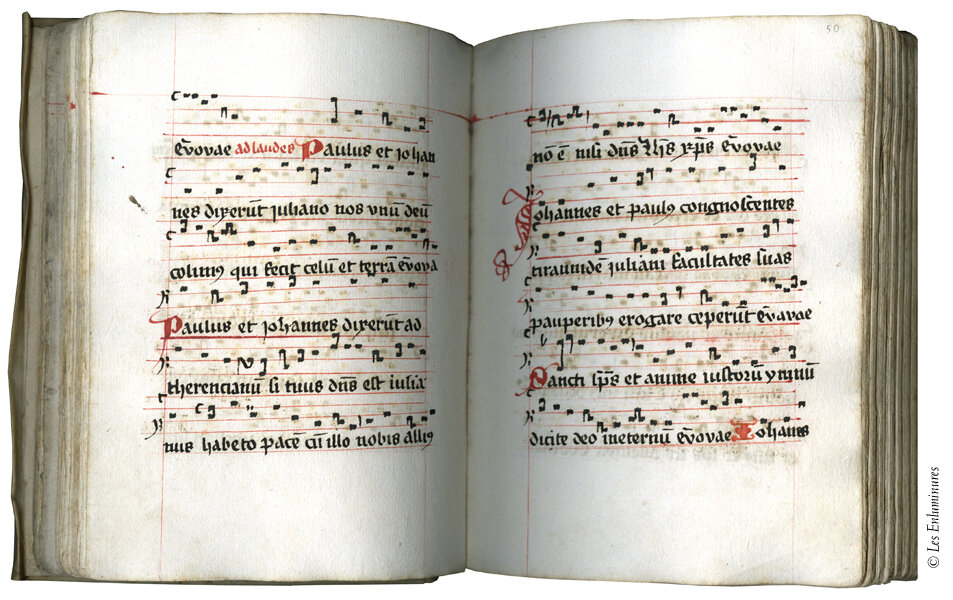 eưovae ad laudes Paulus et ioħan
nes dixerūt iuliano nos vnū deū
colimꝰ qui fecit celū et terrā eưova
Paulus et ioħannes dixerūt ad
therencianū si tuus dn̄s est iulia
nus habeto pacē cū illo nobis alliꝰ
50
nō ē nisi dn̄s iħs xp̄s eưovae
Joħannes et paulꝰ congnoscentes
tirannidē iuliani facultates suas
pauperibꝰ erogare ceperūt eưavae
Sancti sp̄s et anime iustorū ymnū
dicite deo ineternū eưovae Ioħanes
© Les Enluminures